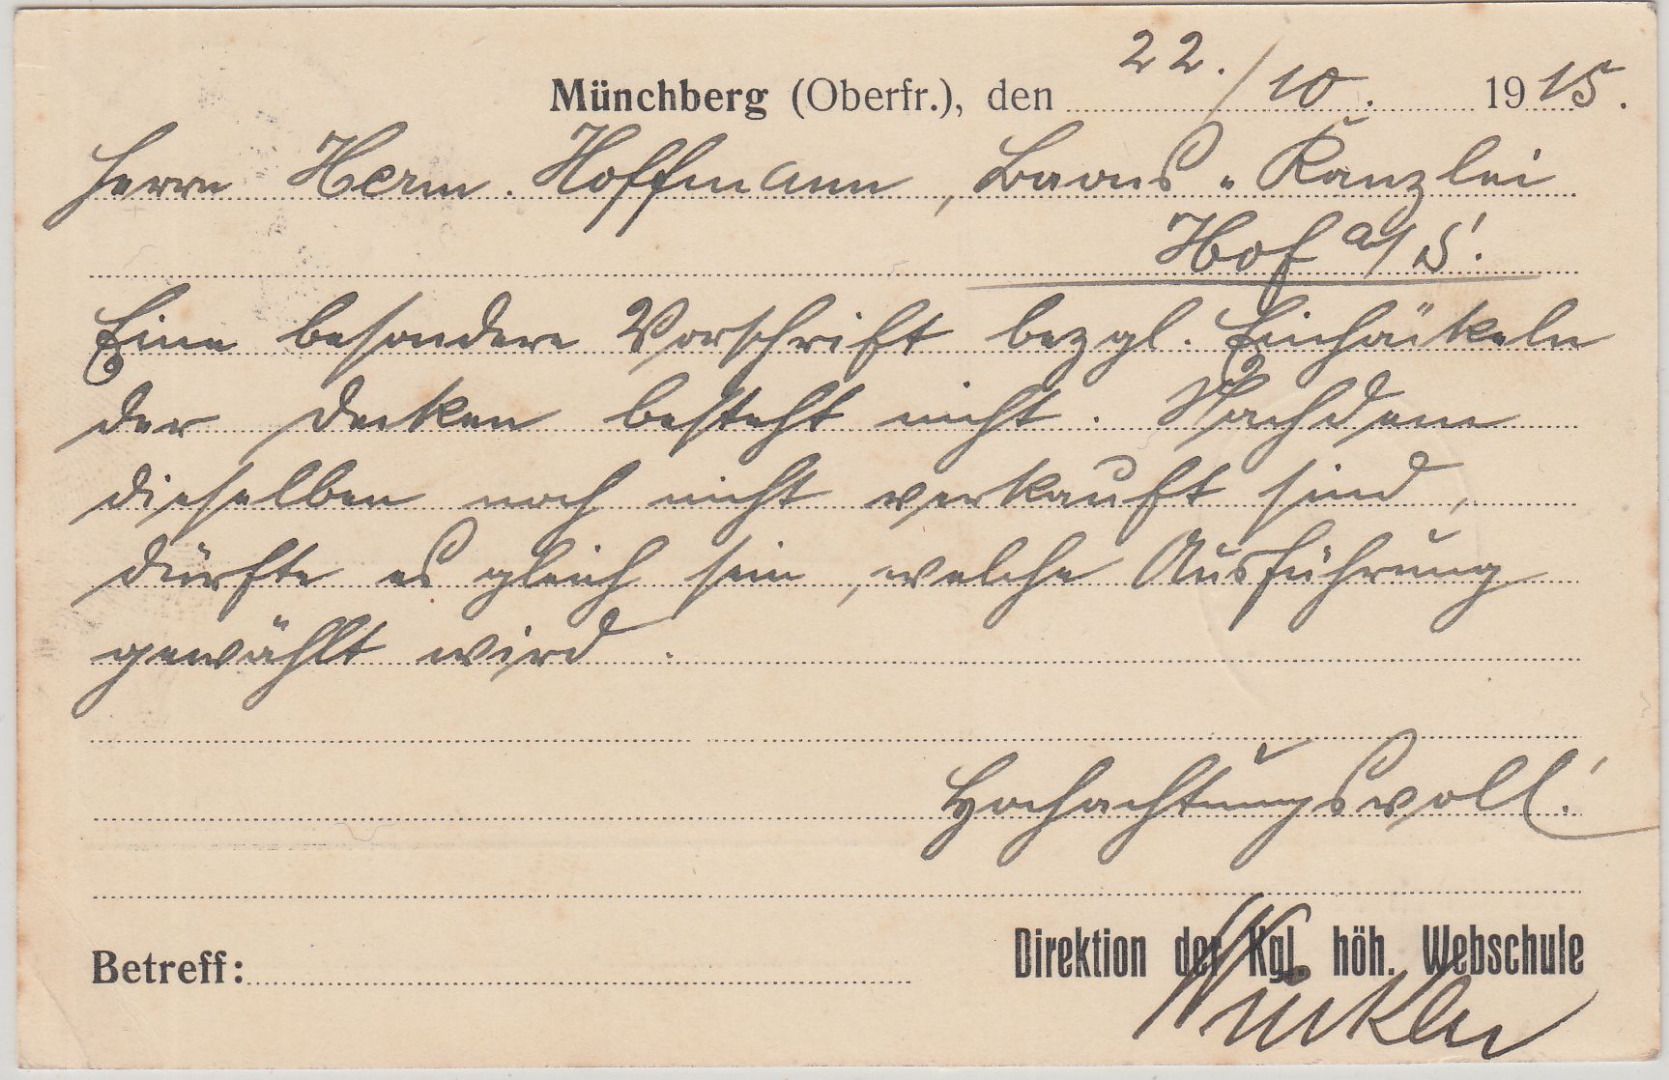 Münchberg (Oberfr.), den 22./10. 1915.
Herrn Herm. Hoffmann, Baons-Kanzlei
Hof a/S.
Eine besondere Vorschrift bezgl. Einhäkeln
der Decken besteht nicht. Nachdem
dieselben noch nicht verkauft sind,
dürfte es gleich sein, welche Ausführung
gewählt wird.
Hochachtungsvoll!
Direktion der Kgl. höh. Webschule
Betreff: